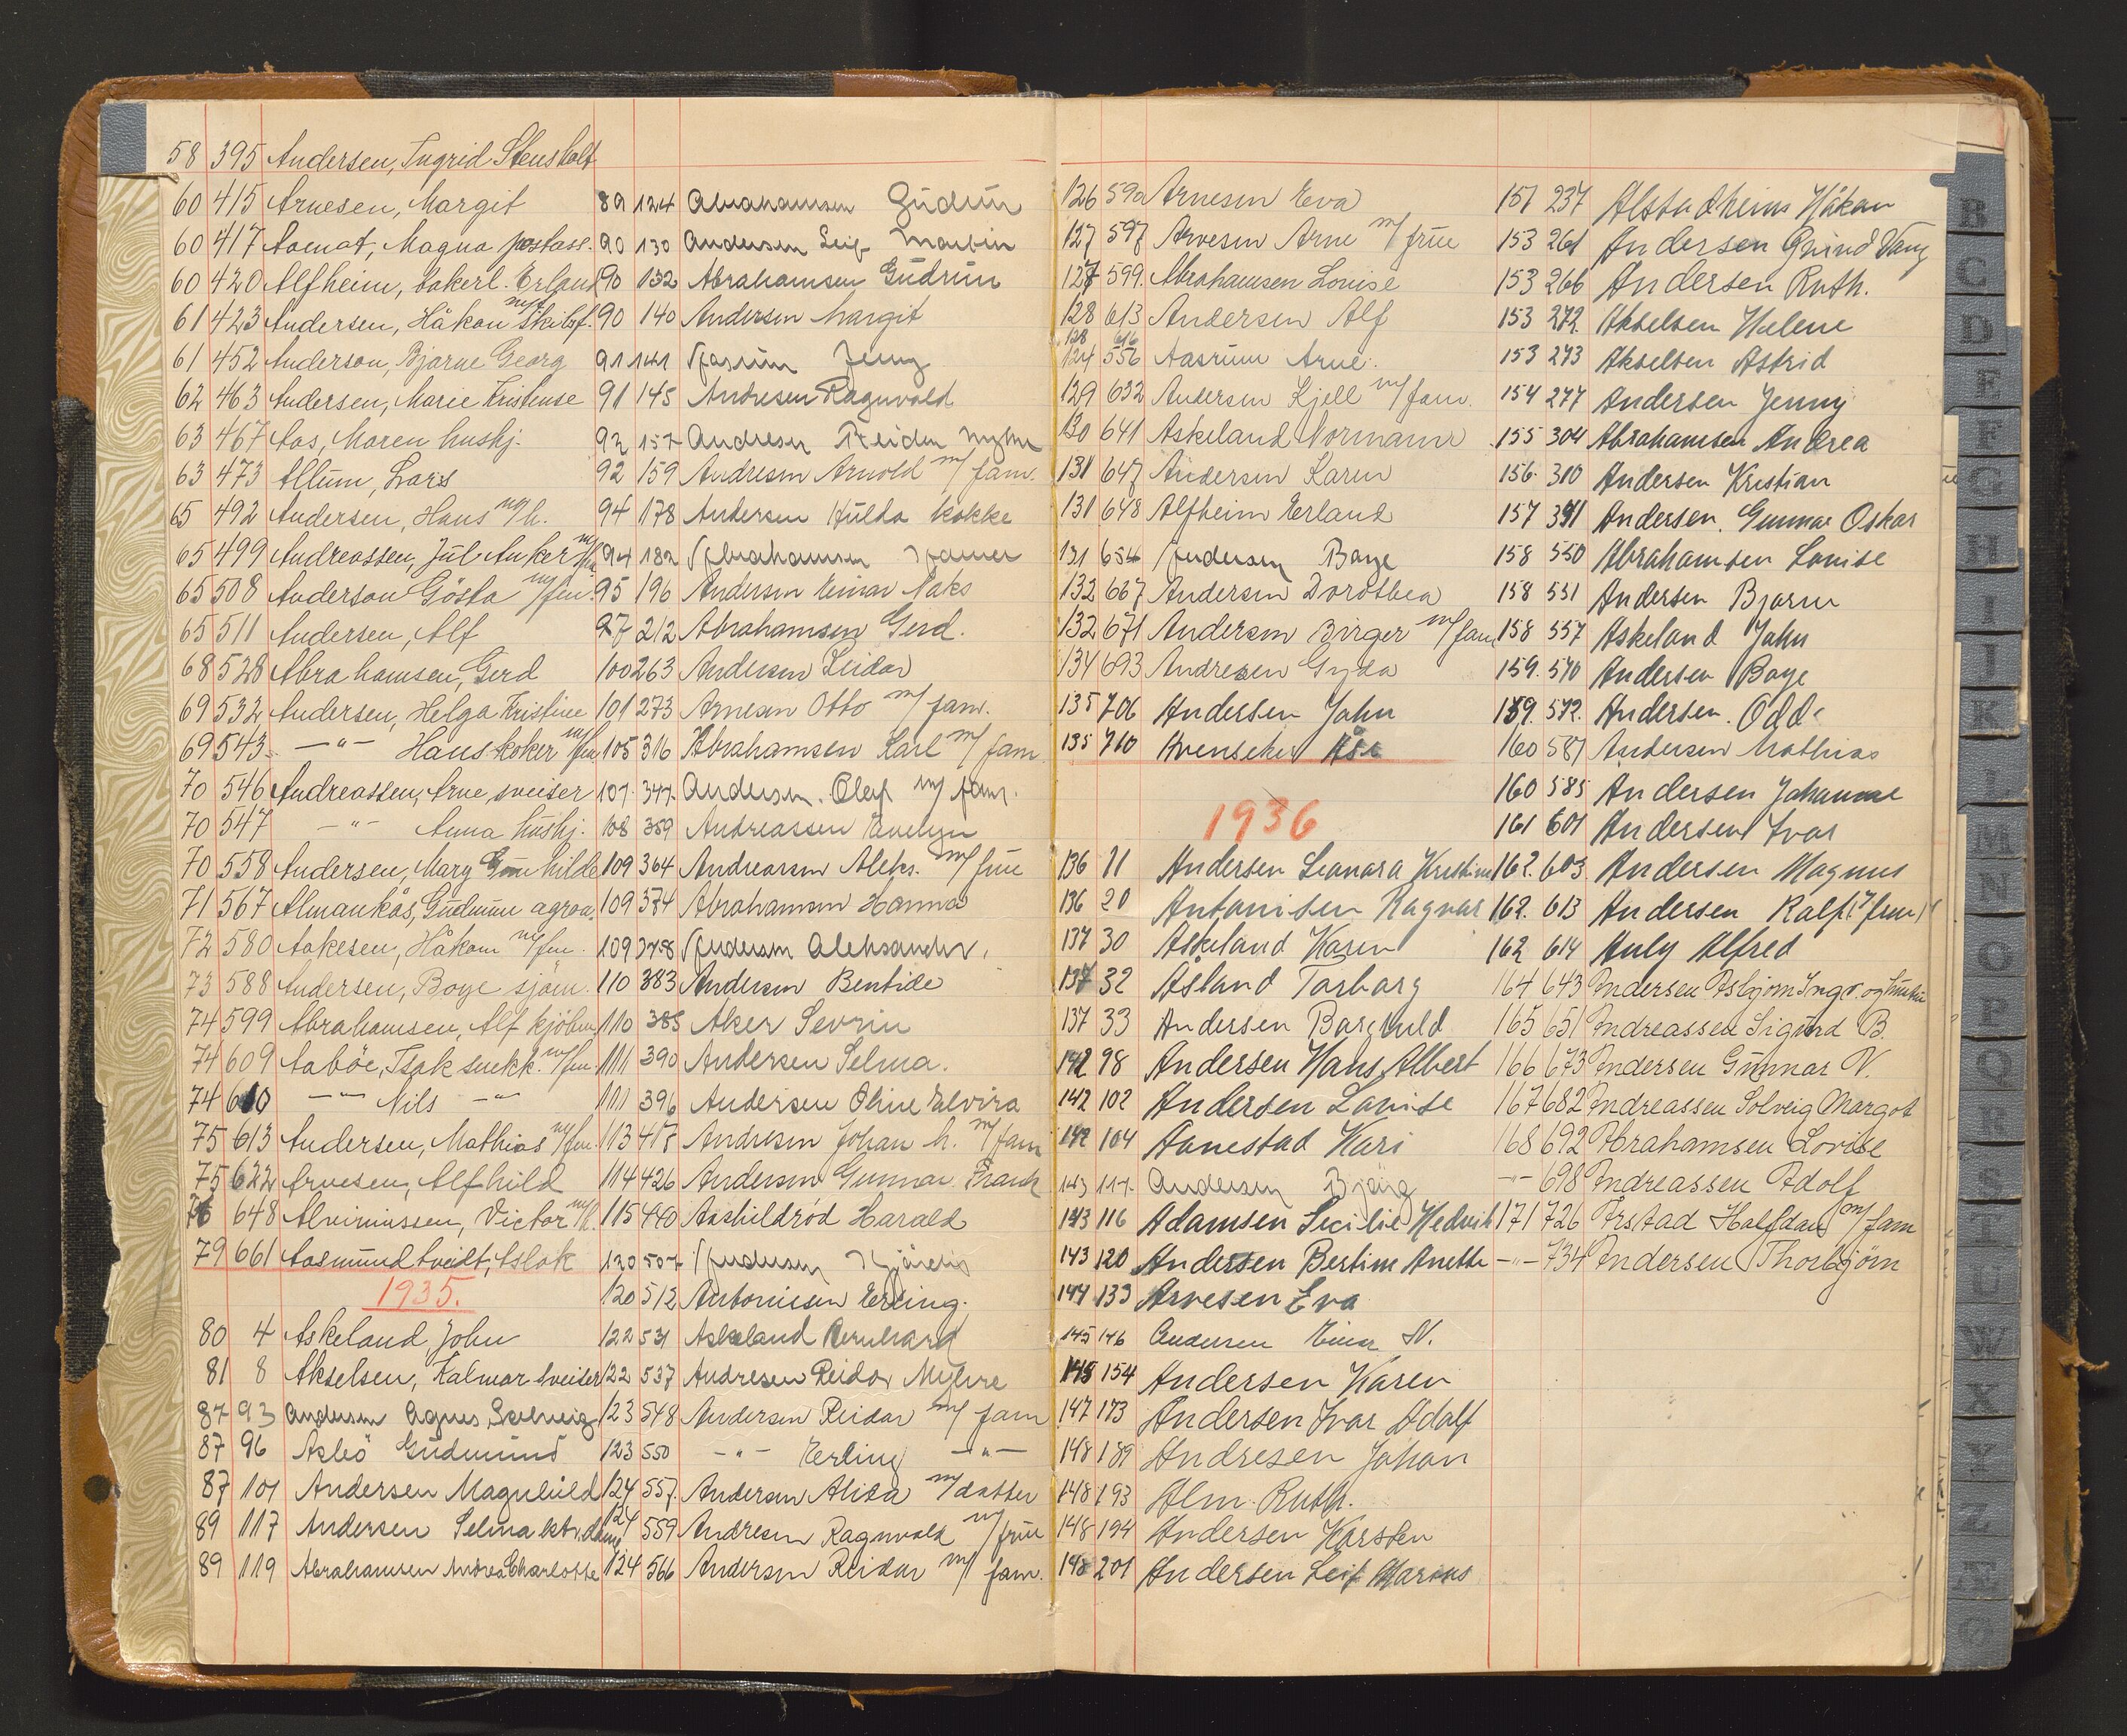 58 395 Andersen, Ingrid Stensholt
60 415 Arnesen, Margit
60 417 Aamot, Magna postass.
60 420 Alfheim, bakerl. Erland
61 423 Andersen, Håkon skibsf. m/f
61 452 Anderson, Bjarne Georg
62 463 Andersen, Marie Kristense
63 467 Aas, Maren hushj.
63 473 Allum, Lars
65 492 Andersen, Hans m/h.
65 499 Andreassen, Jul. Anker m/fru
65 508 Anderson Gösta m/fru.
65 511 Andersen, Alf
68 528 Abrahamsen, Gerd
69 532 Andersen, Helga Kristine
69 543 —"— Hans koker m/fru
70 546 Andreassen, Arne, sveiser
70 547 —"— Anna hushj.
70 558 Andersen, Mary Gunhilde
71 567 Almankås, Gudmun agron.
72 580 Aakesen, Håkon m/fru.
73 588 Andersen, Boye sjøm.
74 599 Abrahamsen, Alf kjøbm.
74 609 Aabøe, Isak snekk. m/fru
74 610 —"— Nils —"—
75 613 Andersen, Mathias m/fru.
75 622 Arvesen, Alfhild
76 648 Alvinussen, Victor m/h.
79 661 Aasmundtveidt, Aslak
1935.
80 4 Askeland, John
81 8 Akselsen, Kalmar sveiser
87 93 Andersen Agnes Solveig
87 96 Asbö Gudmund
87 101 Andersen Magnhild
89 117 Andersen Selma ktr.dame
89 119 Abrahamsen Andrea Charlotte
89 124 Abrahamsen Gudrun
90 130 Andersen Leif Martin
90 132 Abrahamsen Gudrun
90 140 Andersen Margit
91 141 Aasrum Jenny
91 145 Andresen Ragnvald
92 157 Andresen Reidar Myhre
92 159 Andresen Arnold m/ fam.
94 178 Andersen Hulda kokke
94 182 Abrahamsen
95 196 Andersen Einar Naks
97 212 Abrahamsen Gerd.
100 263 Andersen Reidar
101 273 Arnesen Otto m/ fam.
105 316 Abrahamsen Karl m/ fam.
107 347 Andersen. Olaf m/ fam.
108 359 Andreassen Evelyn
109 364 Andreassen Aleks. m/ frue
109 374 Abrahamsen Hanna
109 378 Andersen Aleksander.
110 383 Andersen Bentide
110 385 Aker Sevrin
111 390 Andersen Selma.
111 396 Andersen Oline Elvira
113 418 Andresen Johan M. m/ fam
114 426 Andersen Gunnar Frank
115 440 Aashildrød Harald
120 507 Andersen Hjørdis
120 512 Antonisen Erling.
122 531 Askeland Bernhard
122 537 Andresen Reidar Myhre
123 548 Andersen Reidar m/ fam
123 550 —"— Erling —"—
124 557. Andersen Alida m/datter
124 559 Andresen Ragnvald m/frue
124 566 Andersen Reidar m/ fam.
126 590 Arnesen Eva
127 597 Arvesen Arne m/ frue
127 599. Abrahamsen Louise
128 613 Andersen Alf
128 616
124 556 Aasrum Arne.
129 632 Andersen Kjell m/fam.
130 641 Askeland Normann
131 647 Andersen Karen
131 648 Alfheim Erland
131 654 Andersen Boye
132 667 Andersen Dorothea
132 671 Andersen Birger m/fam
134 693 Andresen Gyda
135 706 Andersen John
135 710 Åse
1936
136 11 Andersen Leonora Kristine
136 20 Antonisen Ragnar
137 30 Askeland Karen
137 32 Åsland Torborg
137 33 Andersen Borghild
142 98 Andersen Hans Albert
142 102 Andersen Lovise
142 104 Aanestad Kari
143 117. Andersen Bjørg
143 116 Adamsen Secilie Hedvik
143 120 Andersen Bertine Anette
144 133 Arvesen Eva
145 146 Andersen Einar N.
145 154 Andersen Karen
147 173 Andersen Ivar Adolf
148 189 Andresen Johan
148 193 Alm. Ruth.
148 194 Andersen Karsten
148 201 Andersen Leif Marius
151 237 Alstadheim Håkon
153 261 Andersen Gerind Vang
153 266 Andersen Ruth.
153 272. Akselsen Helene
153 273 Akselsen Astrid
154 277 Andersen Jenny
155 304 Abrahamsen Andrea
156 310 Andersen Kristian
157 391 Andersen. Gunnar Oskar
158 550 Abrahamsen Lovise
158 551 Andersen Bjarne
158 557 Askeland John
159. 570 Andersen Boye
159. 572. Andersen. Odd.
160 587 Andersen Mathias
160 585 Andersen Johanne
161 601 Andersen Ivar
162. 603 Andersen Magnus
162. 613 Andersen Ralf (m/frue)
162 614 Auly Alfred
164 643 Andersen Asbjørn Ingv. og hustru
165 651 Andreassen Sigurd B.
166 673 Andersen Gunnar N.
167 682 Andreassen Solveig Margot
168 692 Abrahamsen Lovise
—"— 698 Andreassen Adolf
171 726 Arstad Halfdan m/ fam
—"— 734 Andersen Thorbjørn
B
C
D
E
F
G
H
I
J
K
L
M
N
O
P
Q
R
S
T
U
W
X
Y
Z
Æ
Ø